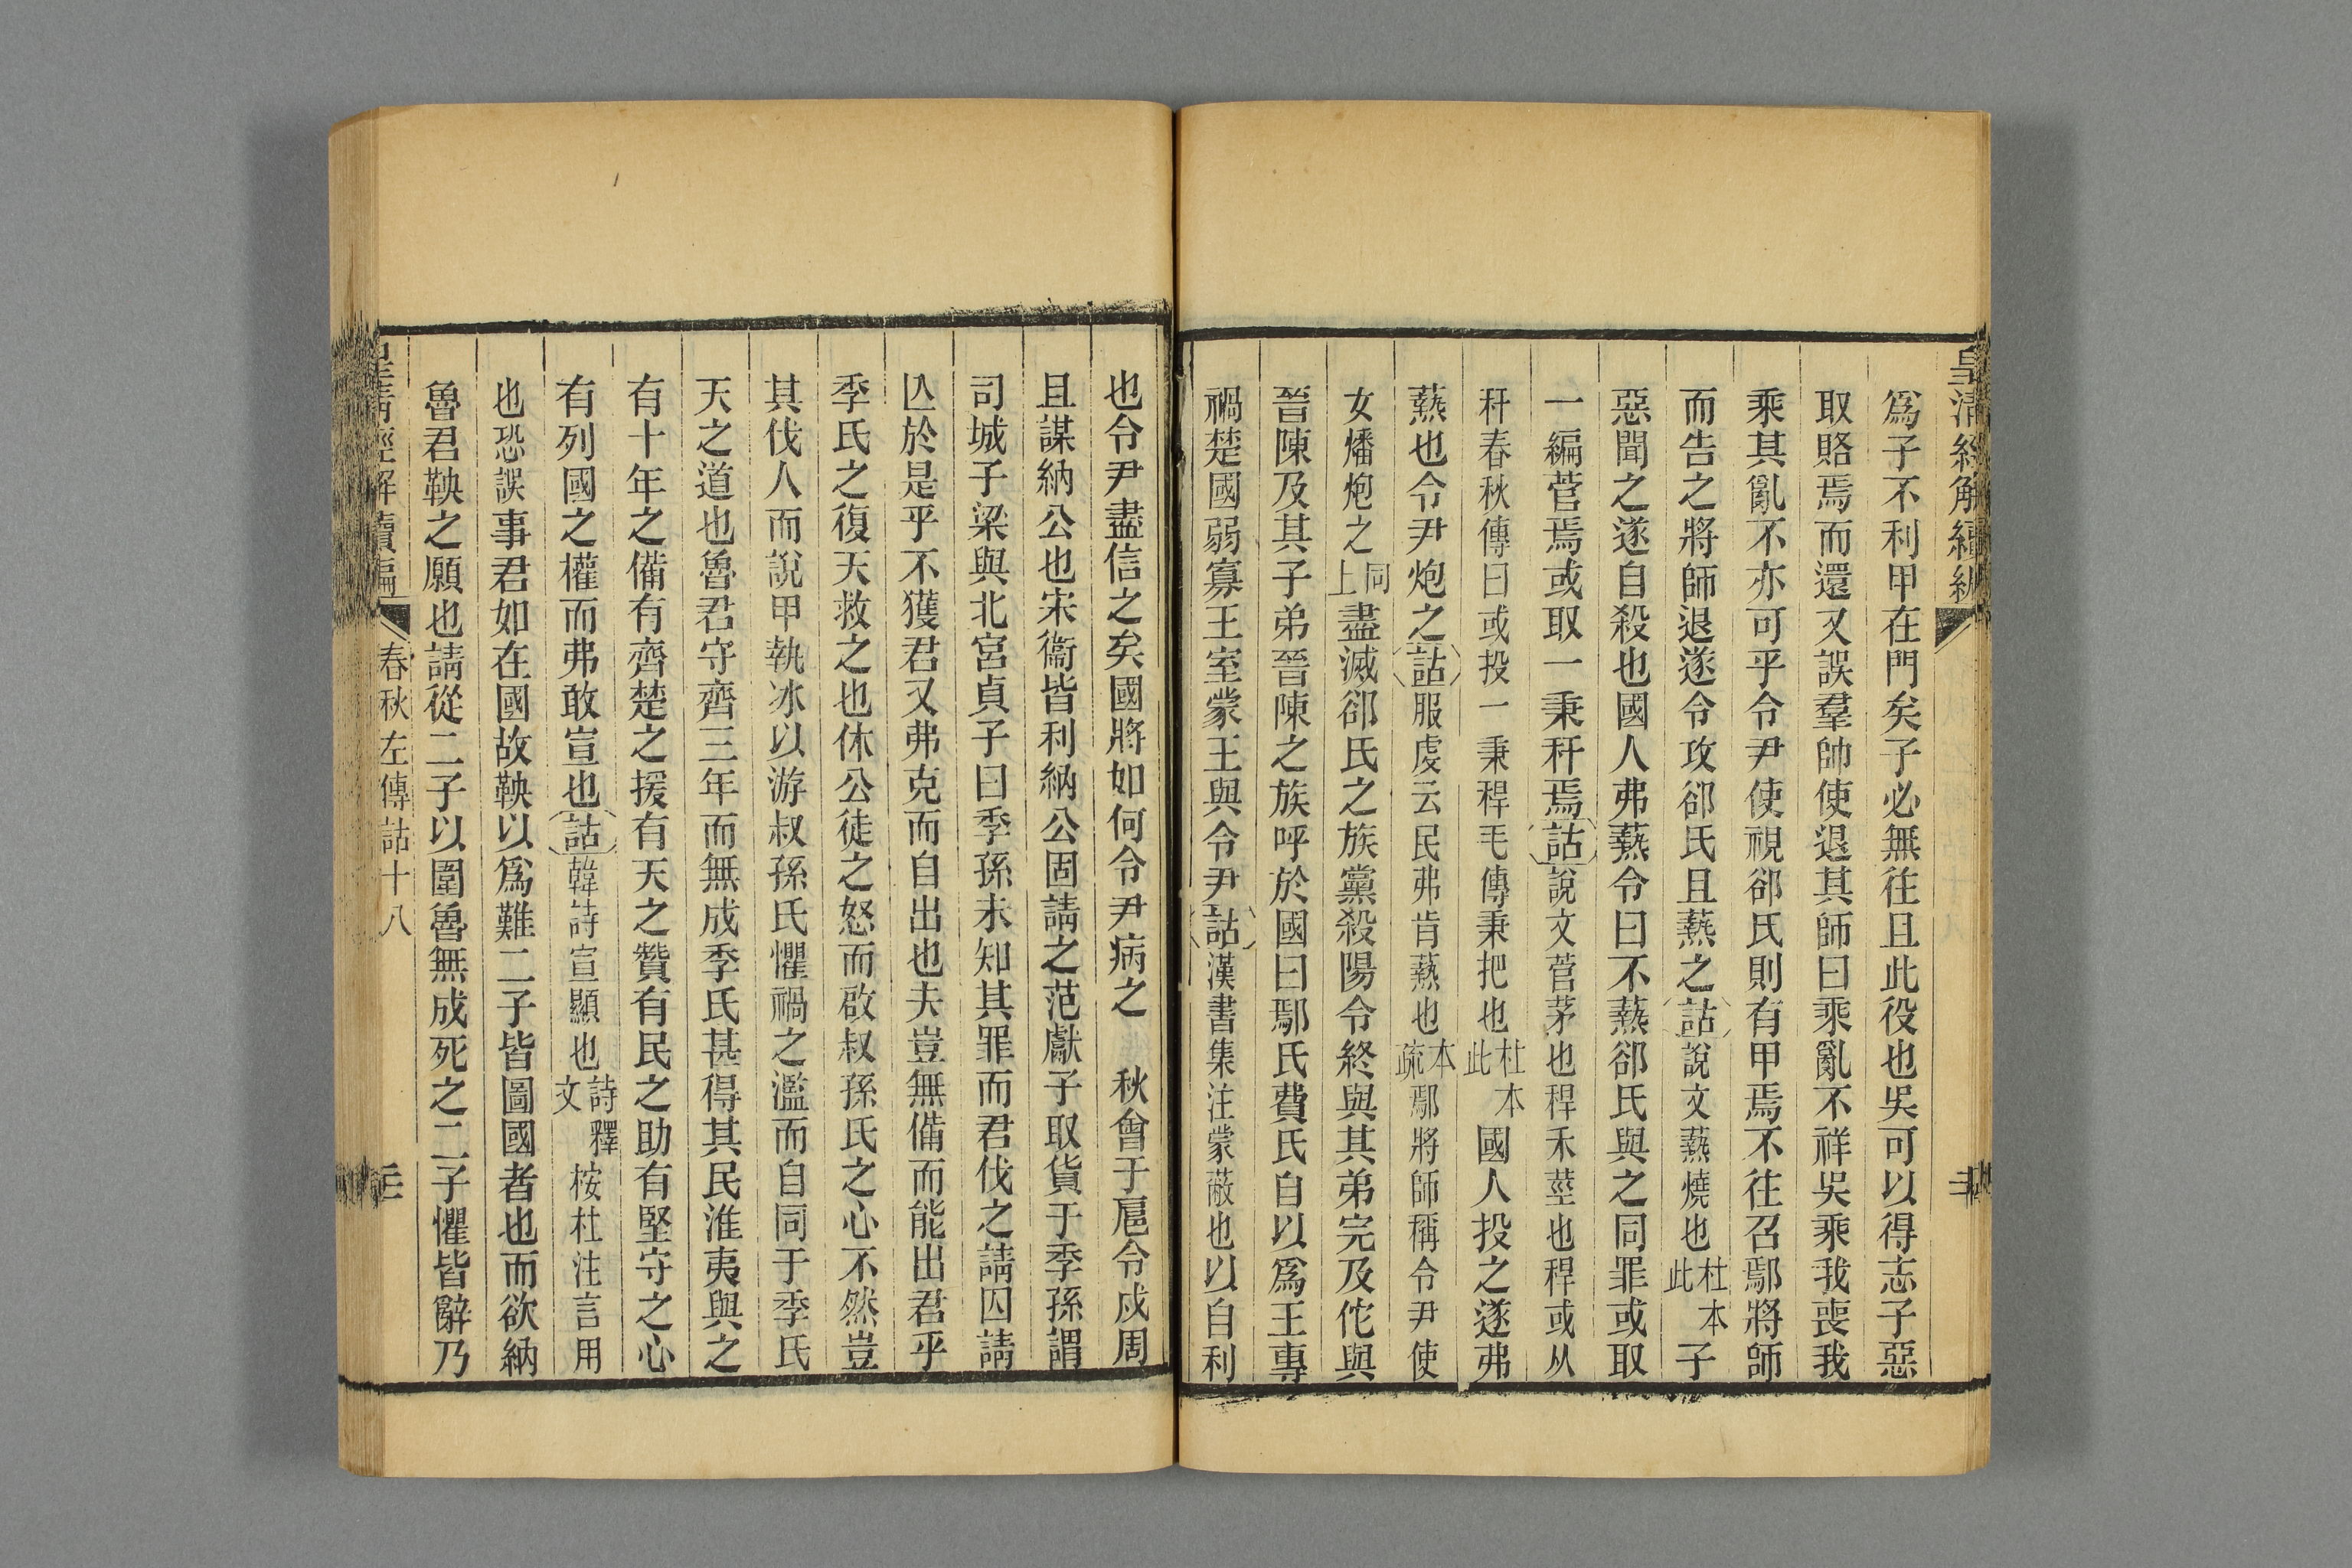 皇清經解續編
爲子不利甲在門矣子必無往且此役也吳可以得志子惡
取賂焉而還又誤羣帥使退其師曰乘亂不祥吳乘我喪我
乘其亂不亦可乎令尹使視郤氏則有甲焉不往召鄢將師
而告之將師退遂令攻郤氏且爇之詁說文爇燒也杜本此子
惡聞之遂自殺也國人弗爇令曰不爇郤氏與之同罪或取
一編菅焉或取一秉秆焉詁說文菅茅也稈禾莖也稈或从
秆春秋傳曰或投一秉稈毛傳秉把也杜本此國人投之遂弗
爇也令尹炮之詁服虔云民弗肯爇也本疏鄢將師稱令尹使
女燔炮之同上盡滅郤氏之族黨殺陽令終與其弟完及佗與
晉陳及其子弟晉陳之族呼於國曰鄢氏費氏自以爲王專
禍楚國弱寡王室蒙王與令尹詁漢書集注蒙蔽也以自利
也令尹盡信之矣國將如何令尹病之 秋會于扈令戍周
且謀納公也宋衞皆利納公固請之范獻子取貨于季孫謂
司城子梁與北宮貞子曰季孫未知其罪而君伐之請囚請
亾於是乎不獲君又弗克而自出也夫豈無備而能出君乎
季氏之復天救之也休公徒之怒而啟叔孫氏之心不然豈
其伐人而說甲執冰以游叔孫氏懼禍之濫而自同于季氏
天之道也魯君守齊三年而無成季氏甚得其民淮夷與之
有十年之備有齊楚之援有天之贊有民之助有堅守之心
有列國之權而弗敢宣也詁韓詩宣顯也詩釋文桉杜注言用
也恐誤事君如在國故鞅以爲難二子皆圖國者也而欲納
魯君鞅之願也請從二子以圍魯無成死之二子懼皆辭乃
皇清經解續編 春秋左傳詁十八